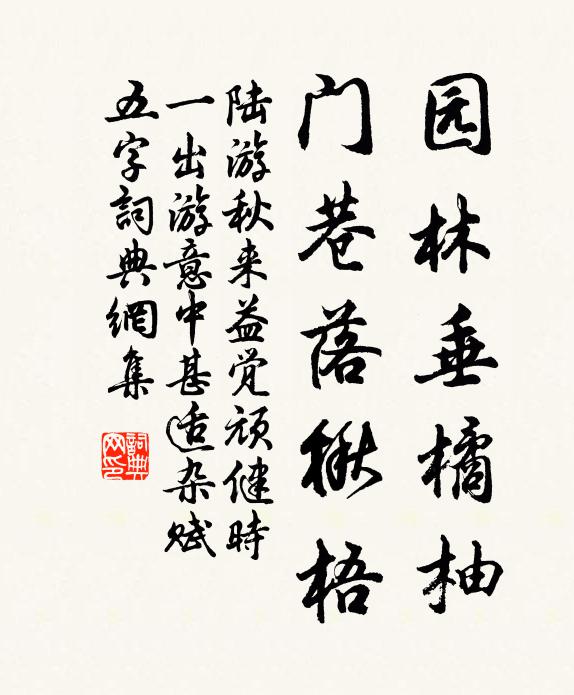 园林垂橘柚
门巷落楸梧
陆游秋来益觉顽健時
一出游意中甚适杂赋
五字詞典網集
詞典网印